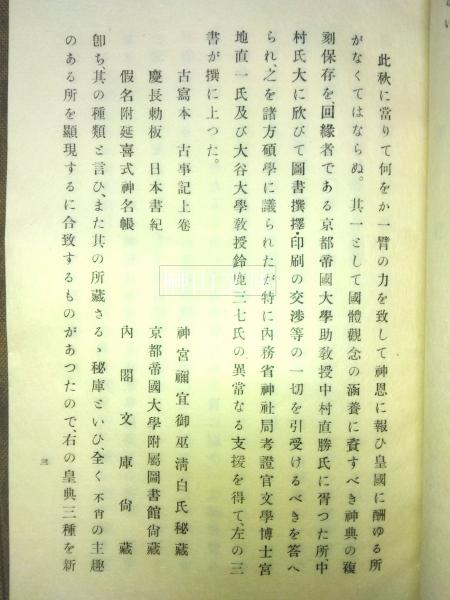 此秋に當りて何をか一臂の力を致して神恩に報ひ皇國に酬ゆる所
がなくてはならぬ。其一として國體觀念の涵養に資すべき神典の複
刻保存を、回緣者である京都帝國大學助教授中村直勝氏に胥つた所、中
村氏大に欣びて圖書撰擇・印刷の交渉等の一切を引受けるべきを答へ
られ、之を諸方碩學に議られたが特に内務省神社局考證官文學博士宮
地直一氏及び大谷大學教授鈴鹿三七氏の異常なる支援を得て、左の三
書が撰に上つた。
古寫本　古事記上卷　神宮禰宜御巫清白氏秘藏
慶長勅板　日本書紀　京都帝國大學附屬圖書館尙藏
假名附延喜式神名帳　内閣文庫尙藏
卽ち、其の種類と言ひ、また其の所藏さるゝ秘庫といひ、全く不肖の主趣
のある所を顯現するに合致するものがあつたので、右の皇典三種を新
三